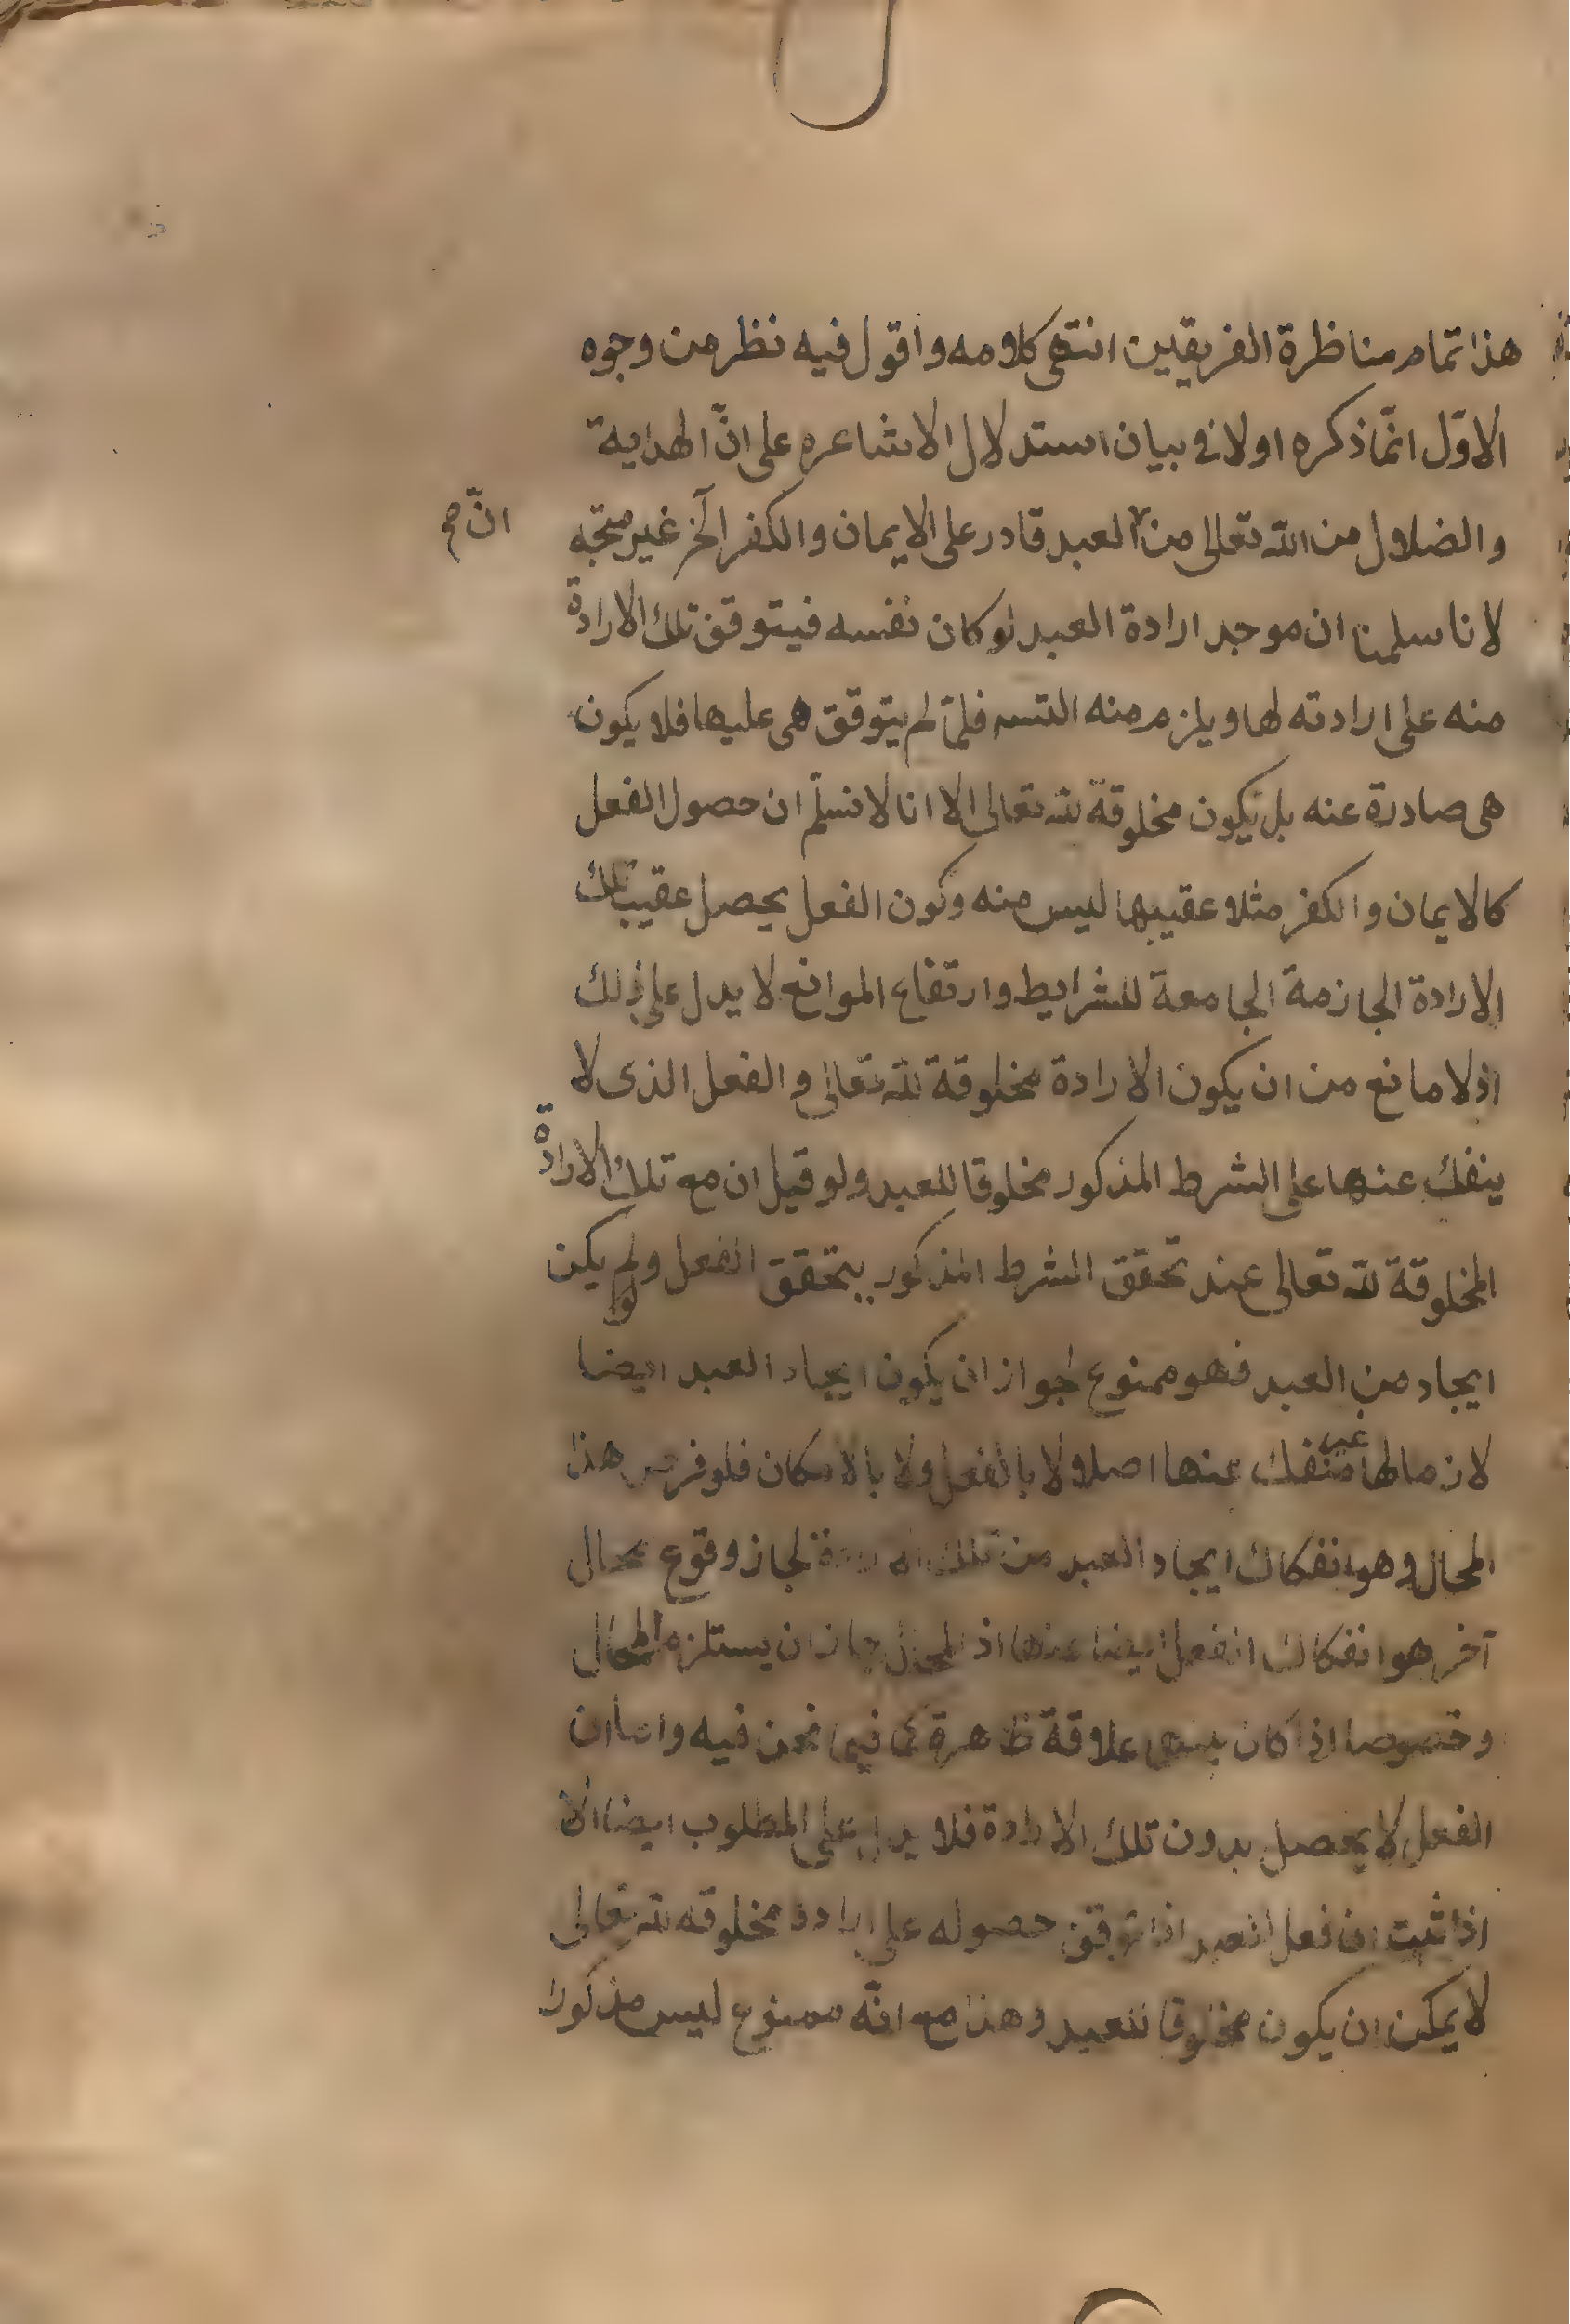 هذا تمام مناظرة الفريقين انتهى كلامه واقول فيه نظر من وجوه
الاوّل انّما ذكره اولا فى بيان استدلال الاشاعره على انّ الهداية
والضلال من الله تعالى من العبد قادر على الايمان والكفر الخ غير متجه
انّ صح
لانا سلمنا ان موجد ارادة العبد لو كان نفسه فيتوقف تلك الارادة
منه على ارادته لها ويلزم منه التسه فلمّا لم يتوقف هى عليها فلا يكون
هى صادرة عنه بل يكون مخلوقة لله تعالى الا انا لا نسلّم ان حصول الفعل
كالايمان والكفر مثلا عقيبها ليس منه وكون الفعل يحصل عقيب تلك
الارادة الجازمة الجامعة للشرايط وارتفاع الموانع لا يدل على ذلك
اذ لا مانع من ان يكون الارادة مخلوقة لله تعالى والفعل الذى لا
ينفك عنها على الشرط المذكور مخلوقا للعبد ولو قيل ان مع تلك الارادة
المخلوقة لله تعالى عند تحقق الشرط المذكور يتحقق الفعل ولو لم يكن
ايجاد من العبد فهو ممنوع لجواز ان يكون ايجاد العبد ايضا
لازما لها غير منفك عنها اصلا ولا بالفعل ولا بالامكان فلو فرض هذا
المحال وهو انفكاك ايجاد العبد من تلك الارادة لجاز وقوع محال
آخر هو انفكاك الفعل ايضا عنها اذ المحال جاز ان يستلزم المحال
وخصوصا اذا كان بينهما علاقة ظاهرة كما فيما نحن فيه واما ان
الفعل لا يحصل بدون تلك الارادة فلا يدل على المطلوب ايضا الا
اذا ثبت ان فعل العبد اذا توقف حصوله على ارادة مخلوقه لله تعالى
لا يمكن ان يكون مخلوقا للعبد وهذا مع انّه ممنوع ليس مذكورا